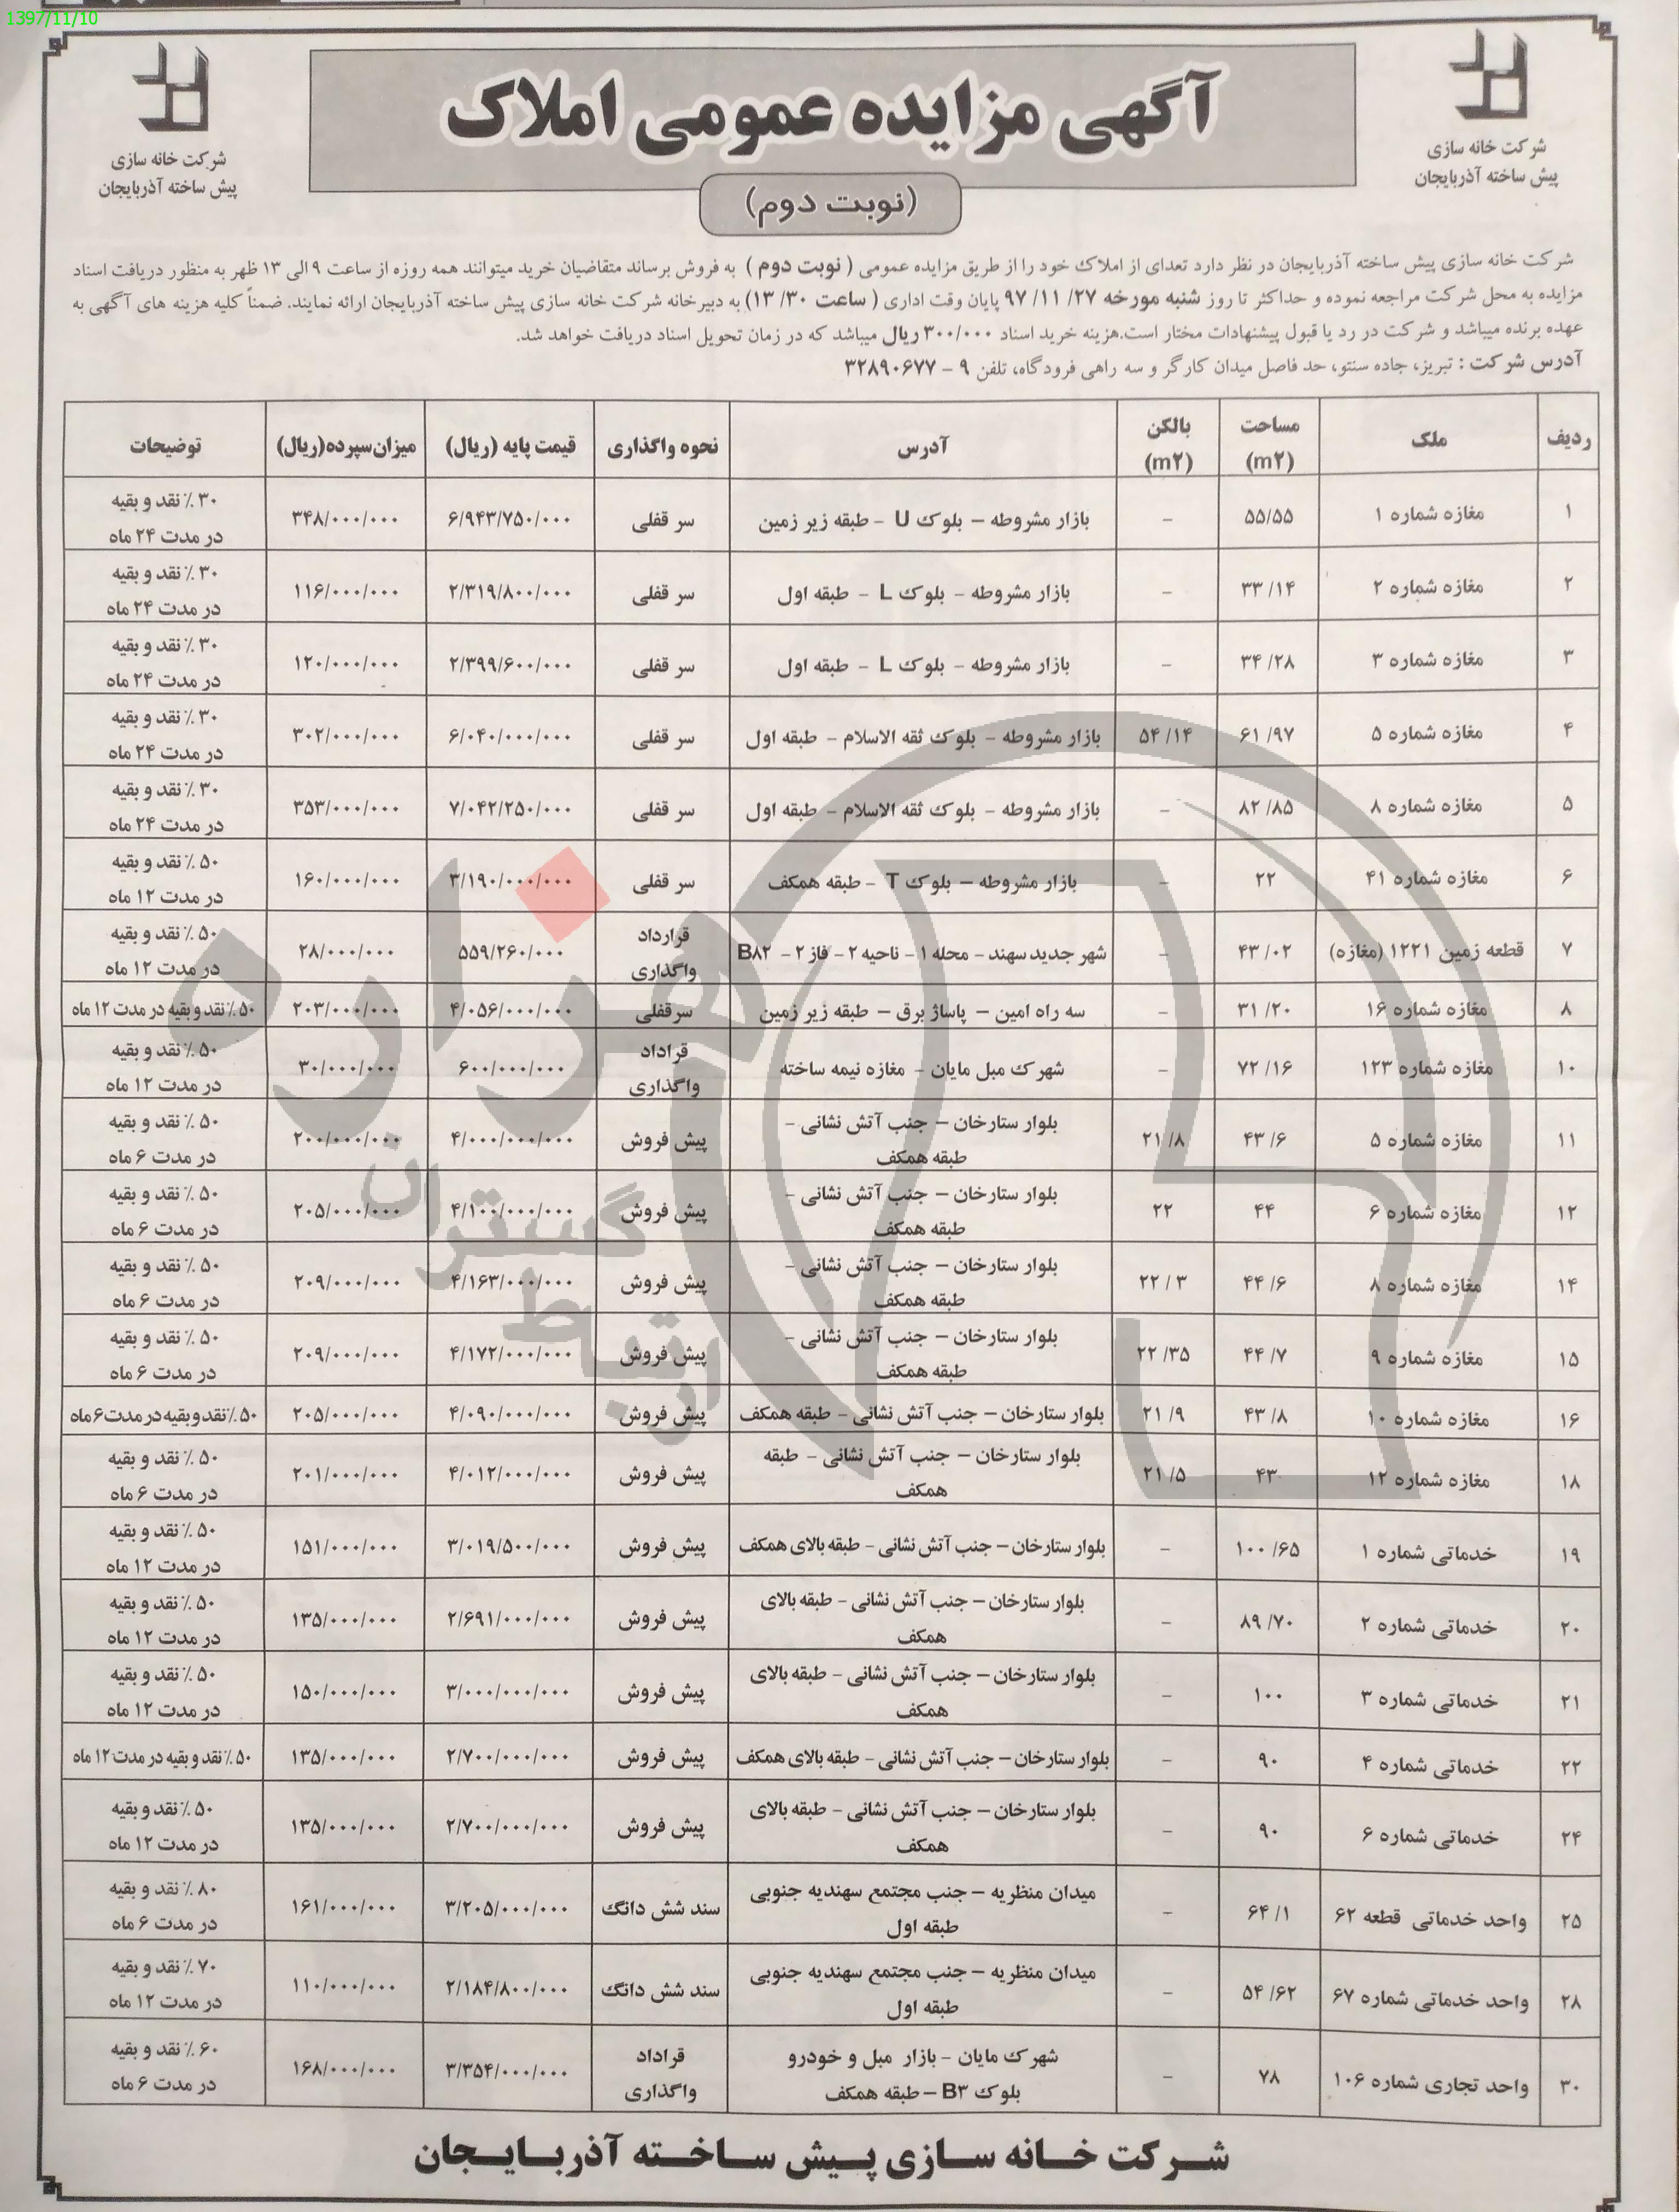 1397/11/10
شرکت خانه سازی
پیش ساخته آذربایجان
آگهی مزایده عمومی املاک
(نوبت دوم)
شرکت خانه سازی
پیش ساخته آذربایجان
شرکت خانه سازی پیش ساخته آذربایجان در نظر دارد تعدای از املاک خود را از طریق مزایده عمومی (نوبت دوم) به فروش برساند متقاضیان خرید میتوانند همه روزه از ساعت ۹ الی ۱۳ ظهر به منظور دریافت اسناد
مزایده به محل شرکت مراجعه نموده و حداکثر تا روز شنبه مورخه ۲۷/ ۱۱/ ۹۷ پایان وقت اداری (ساعت ۳۰/ ۱۳) به دبیرخانه شرکت خانه سازی پیش ساخته آذربایجان ارائه نمایند. ضمناً کلیه هزینه های آگهی به
عهده برنده میباشد و شرکت در رد یا قبول پیشنهادات مختار است.هزینه خرید اسناد ۳۰۰/۰۰۰ ریال میباشد که در زمان تحویل اسناد دریافت خواهد شد.
آدرس شرکت : تبریز، جاده سنتو، حد فاصل میدان کارگر و سه راهی فرودگاه، تلفن ۹ - ۳۲۸۹۰۶۷۷
ردیف ملک مساحت (m۲) بالکن (m۲) آدرس نحوه واگذاری قیمت پایه (ریال) میزان‌سپرده(ریال) توضیحات
۱ مغازه شماره ۱ ۵۵/۵۵ – بازار مشروطه – بلوک U - طبقه زیر زمین سر قفلی ۶/۹۴۳/۷۵۰/۰۰۰ ۳۴۸/۰۰۰/۰۰۰ ۳۰٪ نقد و بقیه در مدت ۲۴ ماه
۲ مغازه شماره ۲ ۳۳/۱۴ – بازار مشروطه - بلوک L - طبقه اول سر قفلی ۲/۳۱۹/۸۰۰/۰۰۰ ۱۱۶/۰۰۰/۰۰۰ ۳۰٪ نقد و بقیه در مدت ۲۴ ماه
۳ مغازه شماره ۳ ۳۴/۲۸ – بازار مشروطه - بلوک L - طبقه اول سر قفلی ۲/۳۹۹/۶۰۰/۰۰۰ ۱۲۰/۰۰۰/۰۰۰ ۳۰٪ نقد و بقیه در مدت ۲۴ ماه
۴ مغازه شماره ۵ ۶۱/۹۷ ۵۴/۱۴ بازار مشروطه - بلوک ثقه الاسلام - طبقه اول سر قفلی ۶/۰۴۰/۰۰۰/۰۰۰ ۳۰۲/۰۰۰/۰۰۰ ۳۰٪ نقد و بقیه در مدت ۲۴ ماه
۵ مغازه شماره ۸ ۸۲/۸۵ – بازار مشروطه - بلوک ثقه الاسلام - طبقه اول سر قفلی ۷/۰۴۲/۲۵۰/۰۰۰ ۳۵۳/۰۰۰/۰۰۰ ۳۰٪ نقد و بقیه در مدت ۲۴ ماه
۶ مغازه شماره ۴۱ ۲۲ – بازار مشروطه – بلوک T - طبقه همکف سر قفلی ۳/۱۹۰/۰۰۰/۰۰۰ ۱۶۰/۰۰۰/۰۰۰ ۵۰٪ نقد و بقیه در مدت ۱۲ ماه
۷ قطعه زمین ۱۲۲۱ (مغازه) ۴۳/۰۲ – شهر جدید سهند - محله ۱ - ناحیه ۲ - فاز ۲ - B۸۲ قرارداد واگذاری ۵۵۹/۲۶۰/۰۰۰ ۲۸/۰۰۰/۰۰۰ ۵۰٪ نقد و بقیه در مدت ۱۲ ماه
۸ مغازه شماره ۱۶ ۳۱/۲۰ – سه راه امین – پاساژ برق – طبقه زیر زمین سرقفلی ۴/۰۵۶/۰۰۰/۰۰۰ ۲۰۳/۰۰۰/۰۰۰ ۵۰٪ نقد و بقیه در مدت ۱۲ ماه
۱۰ مغازه شماره ۱۲۳ ۷۲/۱۶ – شهرک مبل مایان - مغازه نیمه ساخته قراداد واگذاری ۶۰۰/۰۰۰/۰۰۰ ۳۰/۰۰۰/۰۰۰ ۵۰٪ نقد و بقیه در مدت ۱۲ ماه
۱۱ مغازه شماره ۵ ۴۳/۶ ۲۱/۸ بلوار ستارخان – جنب آتش نشانی - طبقه همکف پیش فروش ۴/۰۰۰/۰۰۰/۰۰۰ ۲۰۰/۰۰۰/۰۰۰ ۵۰٪ نقد و بقیه در مدت ۶ ماه
۱۲ مغازه شماره ۶ ۴۴ ۲۲ بلوار ستارخان – جنب آتش نشانی - طبقه همکف پیش فروش ۴/۱۰۰/۰۰۰/۰۰۰ ۲۰۵/۰۰۰/۰۰۰ ۵۰٪ نقد و بقیه در مدت ۶ ماه
۱۴ مغازه شماره ۸ ۴۴/۶ ۲۲/۳ بلوار ستارخان – جنب آتش نشانی - طبقه همکف پیش فروش ۴/۱۶۳/۰۰۰/۰۰۰ ۲۰۹/۰۰۰/۰۰۰ ۵۰٪ نقد و بقیه در مدت ۶ ماه
۱۵ مغازه شماره ۹ ۴۴/۷ ۲۲/۳۵ بلوار ستارخان – جنب آتش نشانی - طبقه همکف پیش فروش ۴/۱۷۲/۰۰۰/۰۰۰ ۲۰۹/۰۰۰/۰۰۰ ۵۰٪ نقد و بقیه در مدت ۶ ماه
۱۶ مغازه شماره ۱۰ ۴۳/۸ ۲۱/۹ بلوار ستارخان – جنب آتش نشانی - طبقه همکف پیش فروش ۴/۰۹۰/۰۰۰/۰۰۰ ۲۰۵/۰۰۰/۰۰۰ ۵۰٪ نقد و بقیه در مدت ۶ ماه
۱۸ مغازه شماره ۱۲ ۴۳ ۲۱/۵ بلوار ستارخان – جنب آتش نشانی - طبقه همکف پیش فروش ۴/۰۱۲/۰۰۰/۰۰۰ ۲۰۱/۰۰۰/۰۰۰ ۵۰٪ نقد و بقیه در مدت ۶ ماه
۱۹ خدماتی شماره ۱ ۱۰۰/۶۵ – بلوار ستارخان – جنب آتش نشانی - طبقه بالای همکف پیش فروش ۳/۰۱۹/۵۰۰/۰۰۰ ۱۵۱/۰۰۰/۰۰۰ ۵۰٪ نقد و بقیه در مدت ۱۲ ماه
۲۰ خدماتی شماره ۲ ۸۹/۷۰ – بلوار ستارخان – جنب آتش نشانی - طبقه بالای همکف پیش فروش ۲/۶۹۱/۰۰۰/۰۰۰ ۱۳۵/۰۰۰/۰۰۰ ۵۰٪ نقد و بقیه در مدت ۱۲ ماه
۲۱ خدماتی شماره ۳ ۱۰۰ – بلوار ستارخان – جنب آتش نشانی - طبقه بالای همکف پیش فروش ۳/۰۰۰/۰۰۰/۰۰۰ ۱۵۰/۰۰۰/۰۰۰ ۵۰٪ نقد و بقیه در مدت ۱۲ ماه
۲۲ خدماتی شماره ۴ ۹۰ – بلوار ستارخان – جنب آتش نشانی - طبقه بالای همکف پیش فروش ۲/۷۰۰/۰۰۰/۰۰۰ ۱۳۵/۰۰۰/۰۰۰ ۵۰٪ نقد و بقیه در مدت ۱۲ ماه
۲۴ خدماتی شماره ۶ ۹۰ – بلوار ستارخان – جنب آتش نشانی - طبقه بالای همکف پیش فروش ۲/۷۰۰/۰۰۰/۰۰۰ ۱۳۵/۰۰۰/۰۰۰ ۵۰٪ نقد و بقیه در مدت ۱۲ ماه
۲۵ واحد خدماتی قطعه ۶۲ ۶۴/۱ – میدان منظریه – جنب مجتمع سهندیه جنوبی طبقه اول سند شش دانگ ۳/۲۰۵/۰۰۰/۰۰۰ ۱۶۱/۰۰۰/۰۰۰ ۸۰٪ نقد و بقیه در مدت ۶ ماه
۲۸ واحد خدماتی شماره ۶۷ ۵۴/۶۲ – میدان منظریه – جنب مجتمع سهندیه جنوبی طبقه اول سند شش دانگ ۲/۱۸۴/۸۰۰/۰۰۰ ۱۱۰/۰۰۰/۰۰۰ ۷۰٪ نقد و بقیه در مدت ۱۲ ماه
۳۰ واحد تجاری شماره ۱۰۶ ۷۸ – شهرک مایان - بازار مبل و خودرو بلوک B۳ – طبقه همکف قراداد واگذاری ۳/۳۵۴/۰۰۰/۰۰۰ ۱۶۸/۰۰۰/۰۰۰ ۶۰٪ نقد و بقیه در مدت ۶ ماه
هزاره
گستران
ارتباط
شرکت خانه سازی پیش ساخته آذربایجان